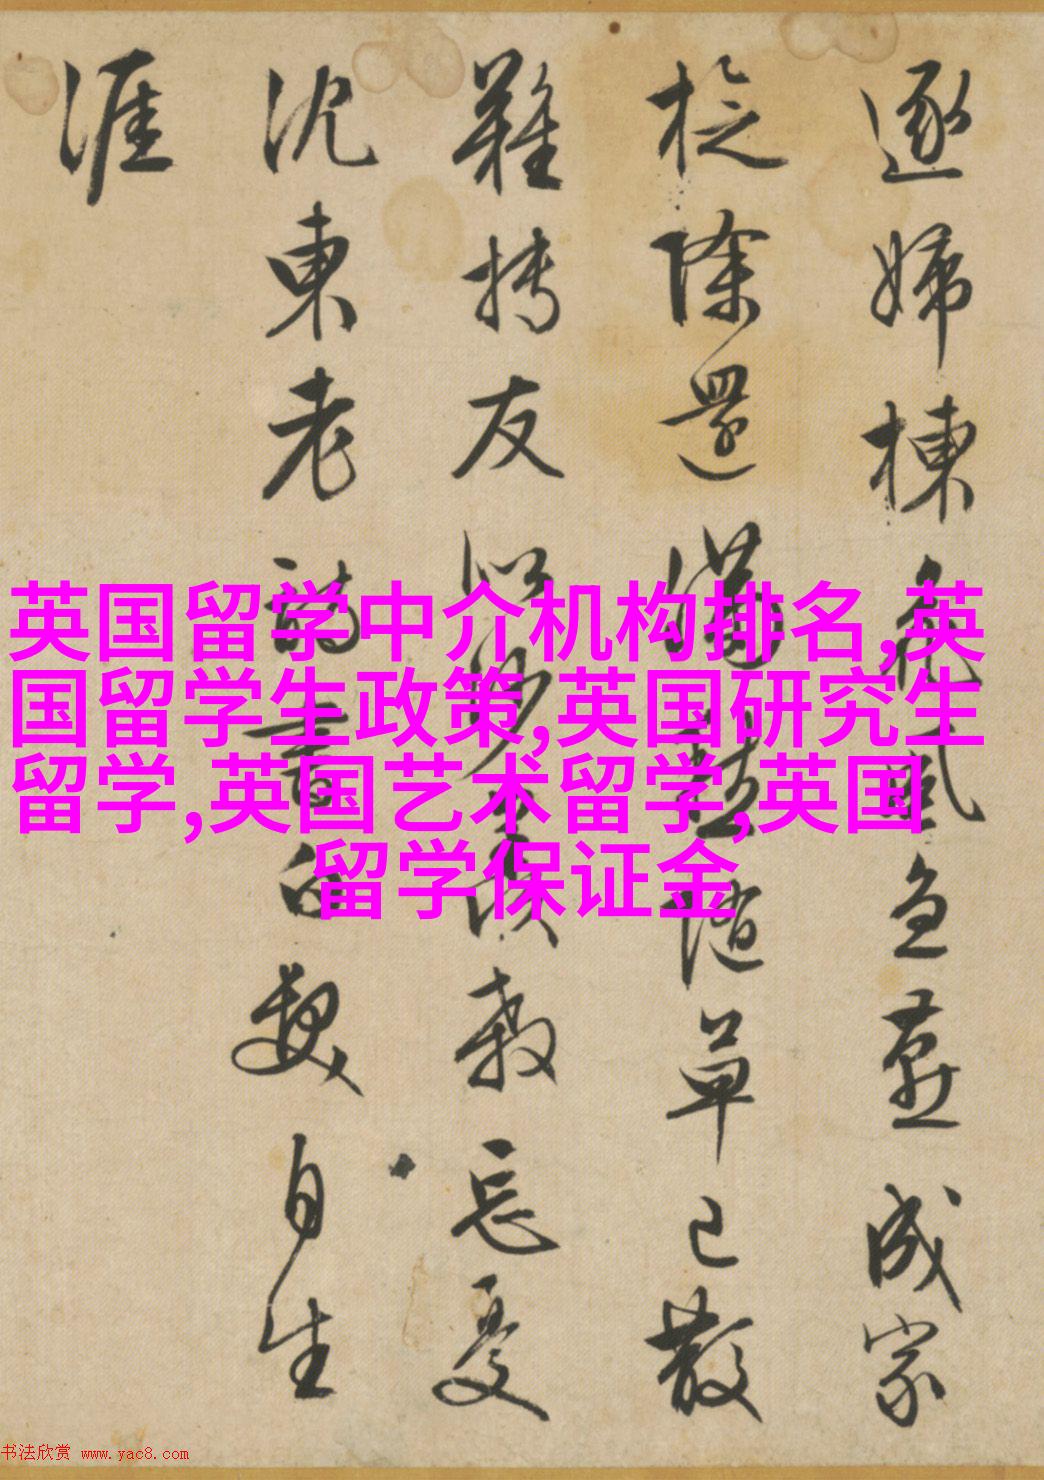 逐婦楝花風色成家
除還滿隨草已散
難摶友忘受
沈東老自生
涯
英国留学中介机构排名,英
国留学生政策,英国研究生
留学,英国艺术留学,英国
留学保证金
书法欣赏 www.yac8.com